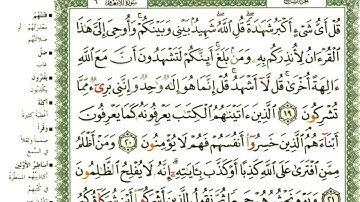 قُلْ أَىُّ شَىْءٍ أَكْبَرُ شَهَٰدَةً قُلِ ٱللَّهُ شَهِيدٌۢ بَيْنِى وَبَيْنَكُمْ وَأُوحِىَ إِلَىَّ هَٰذَا
ٱلْقُرْءَانُ لِأُنذِرَكُم بِهِۦ وَمَنۢ بَلَغَ أَئِنَّكُمْ لَتَشْهَدُونَ أَنَّ مَعَ ٱللَّهِ
ءَالِهَةً أُخْرَىٰ قُل لَّآ أَشْهَدُ قُلْ إِنَّمَا هُوَ إِلَٰهٌ وَٰحِدٌ وَإِنَّنِى بَرِىٓءٌ مِّمَّا
تُشْرِكُونَ ١٩ ٱلَّذِينَ ءَاتَيْنَٰهُمُ ٱلْكِتَٰبَ يَعْرِفُونَهُۥ كَمَا يَعْرِفُونَ
أَبْنَآءَهُمُ ٱلَّذِينَ خَسِرُوٓا۟ أَنفُسَهُمْ فَهُمْ لَا يُؤْمِنُونَ ٢٠ وَمَنْ أَظْلَمُ
مِمَّنِ ٱفْتَرَىٰ عَلَى ٱللَّهِ كَذِبًا أَوْ كَذَّبَ بِـَٔايَٰتِهِۦٓ إِنَّهُۥ لَا يُفْلِحُ ٱلظَّٰلِمُونَ
٢١ وَيَوْمَ نَحْشُرُهُمْ جَمِيعًا ثُمَّ نَقُولُ لِلَّذِينَ أَشْرَكُوٓا۟ أَيْنَ شُرَكَآؤُكُمُ